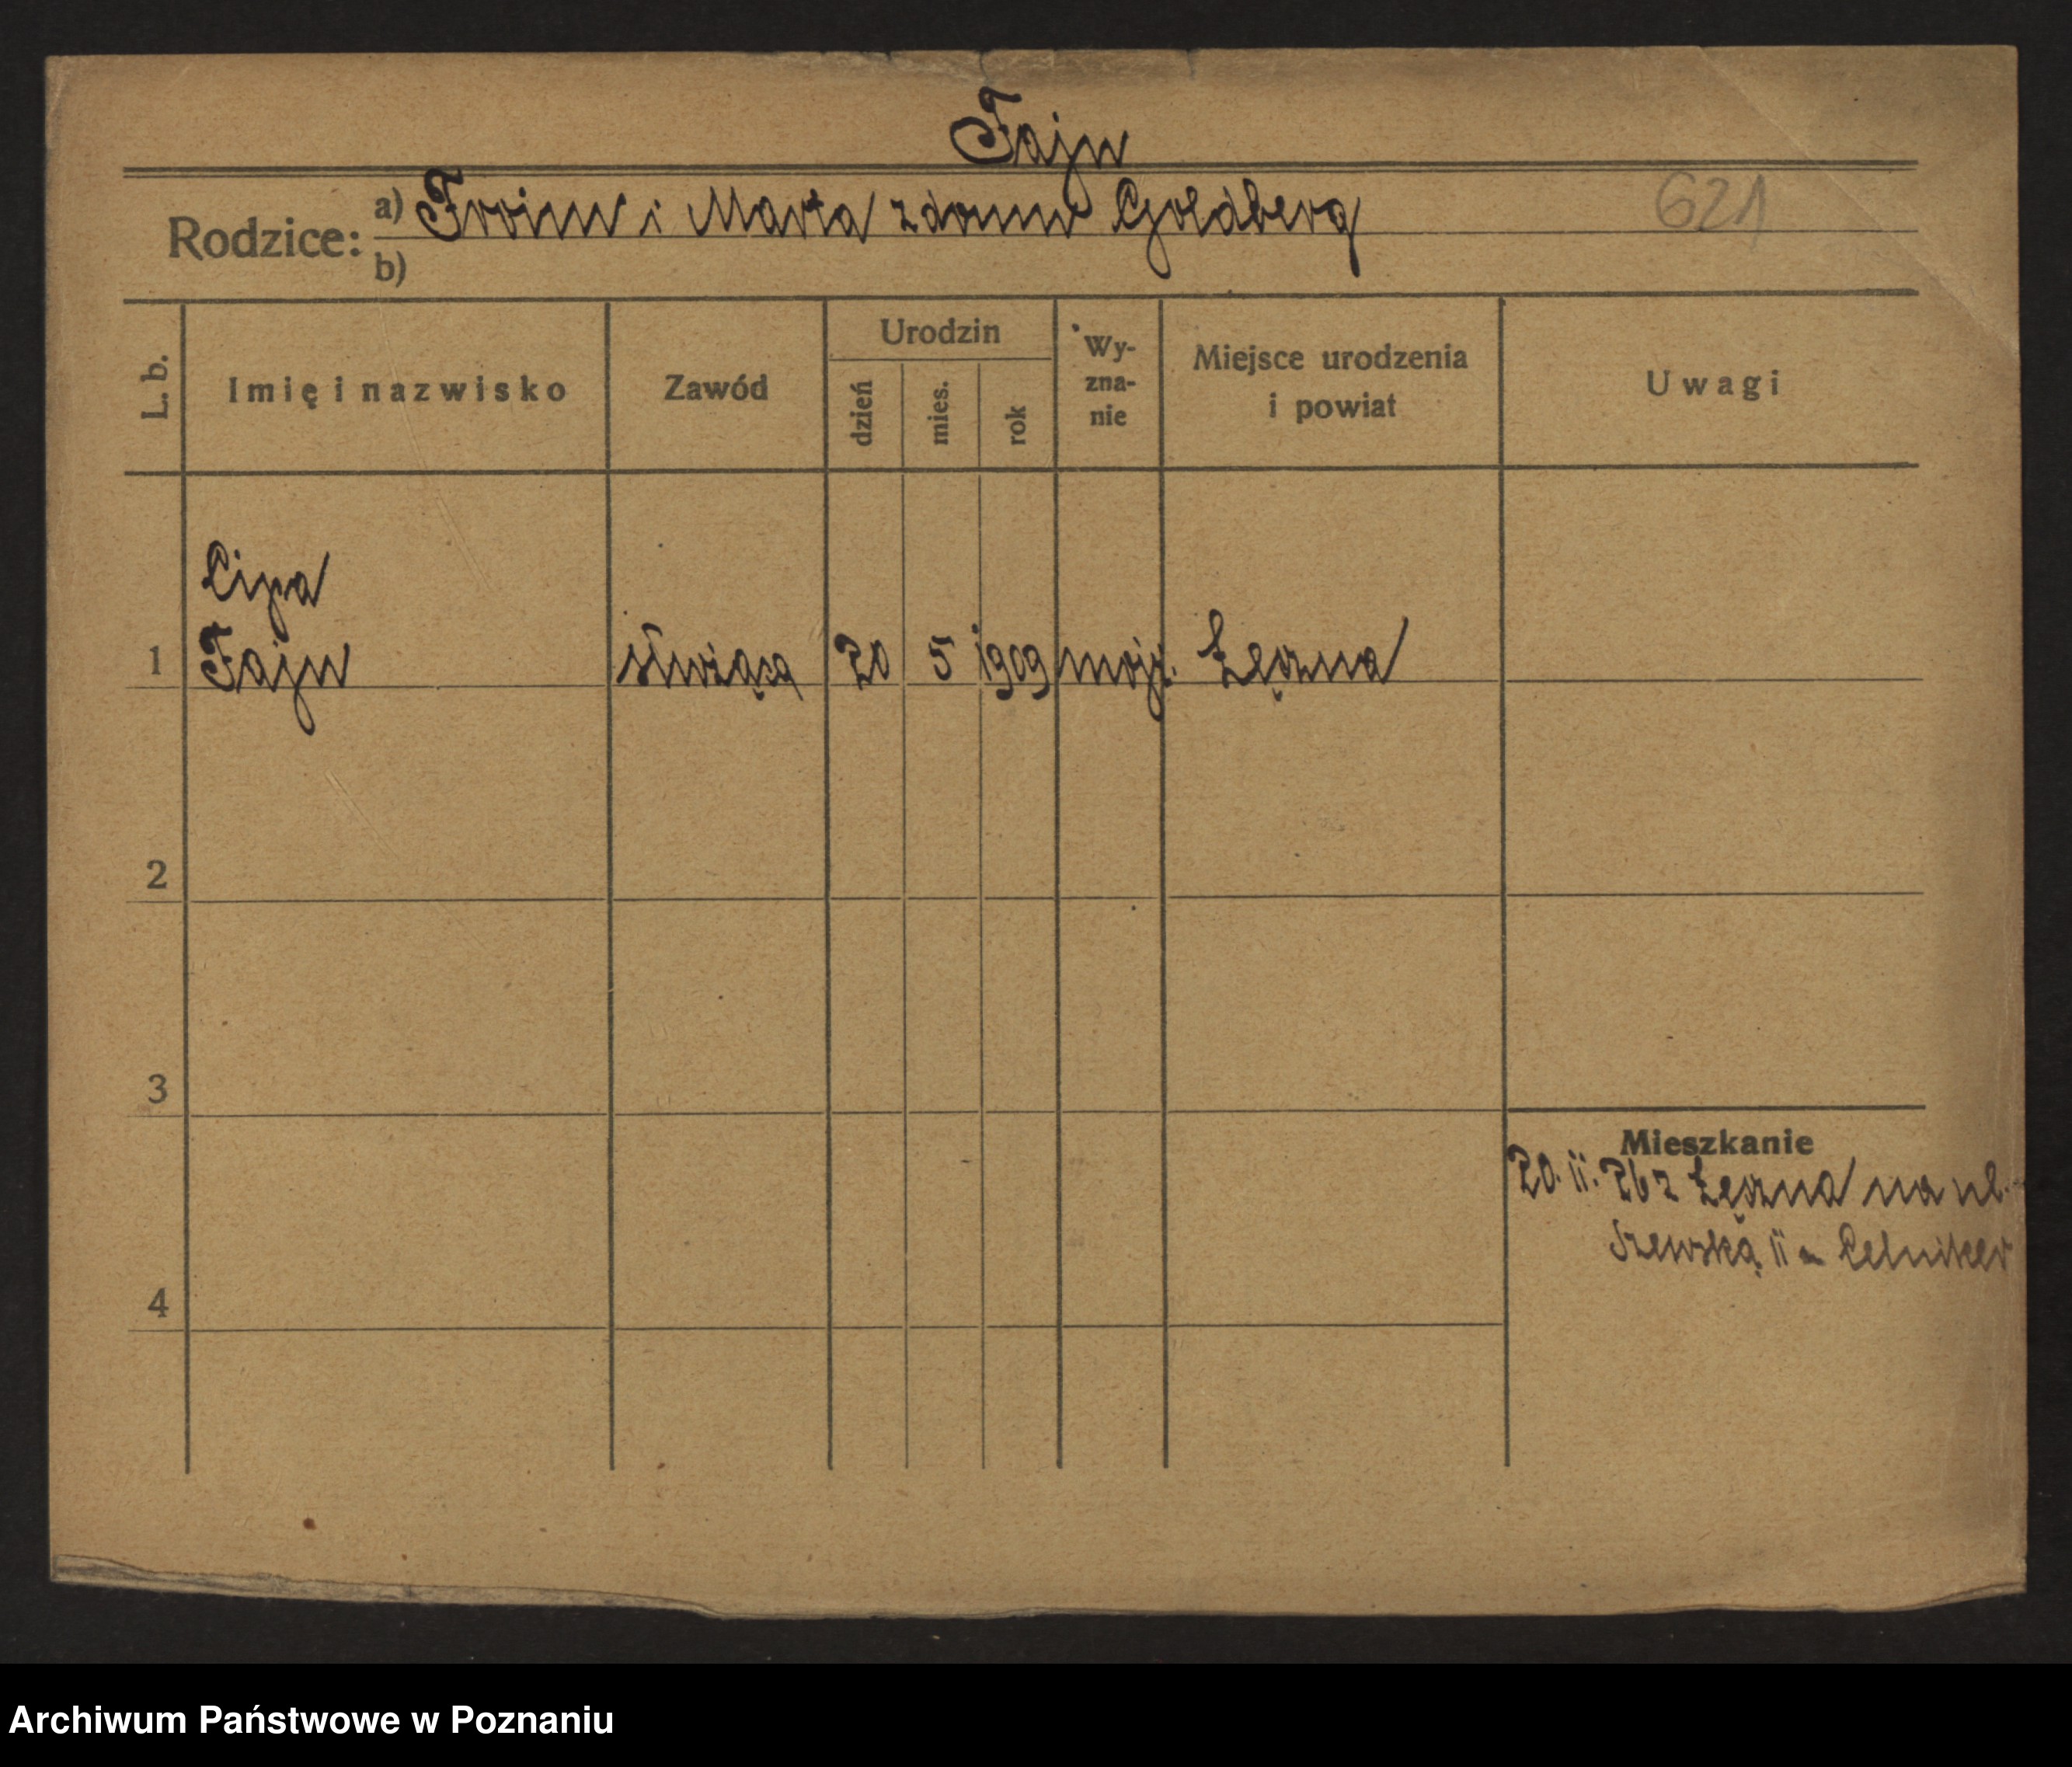 Fajn
Rodzice: a) Froim i Marta z domu Goldberg
621
b)
L. b. Imię i nazwisko Zawód Urodzin dzień mies. rok Wy-zna-nie Miejsce urodzenia i powiat Uwagi
Cipa
1 Fajn służącą 20 5 1909 mojż. Łęczna
2
3
Mieszkanie
20. 11. 26 z Łęczna na ul.
Szewską 11 - Celniker
4
Archiwum Państwowe w Poznaniu